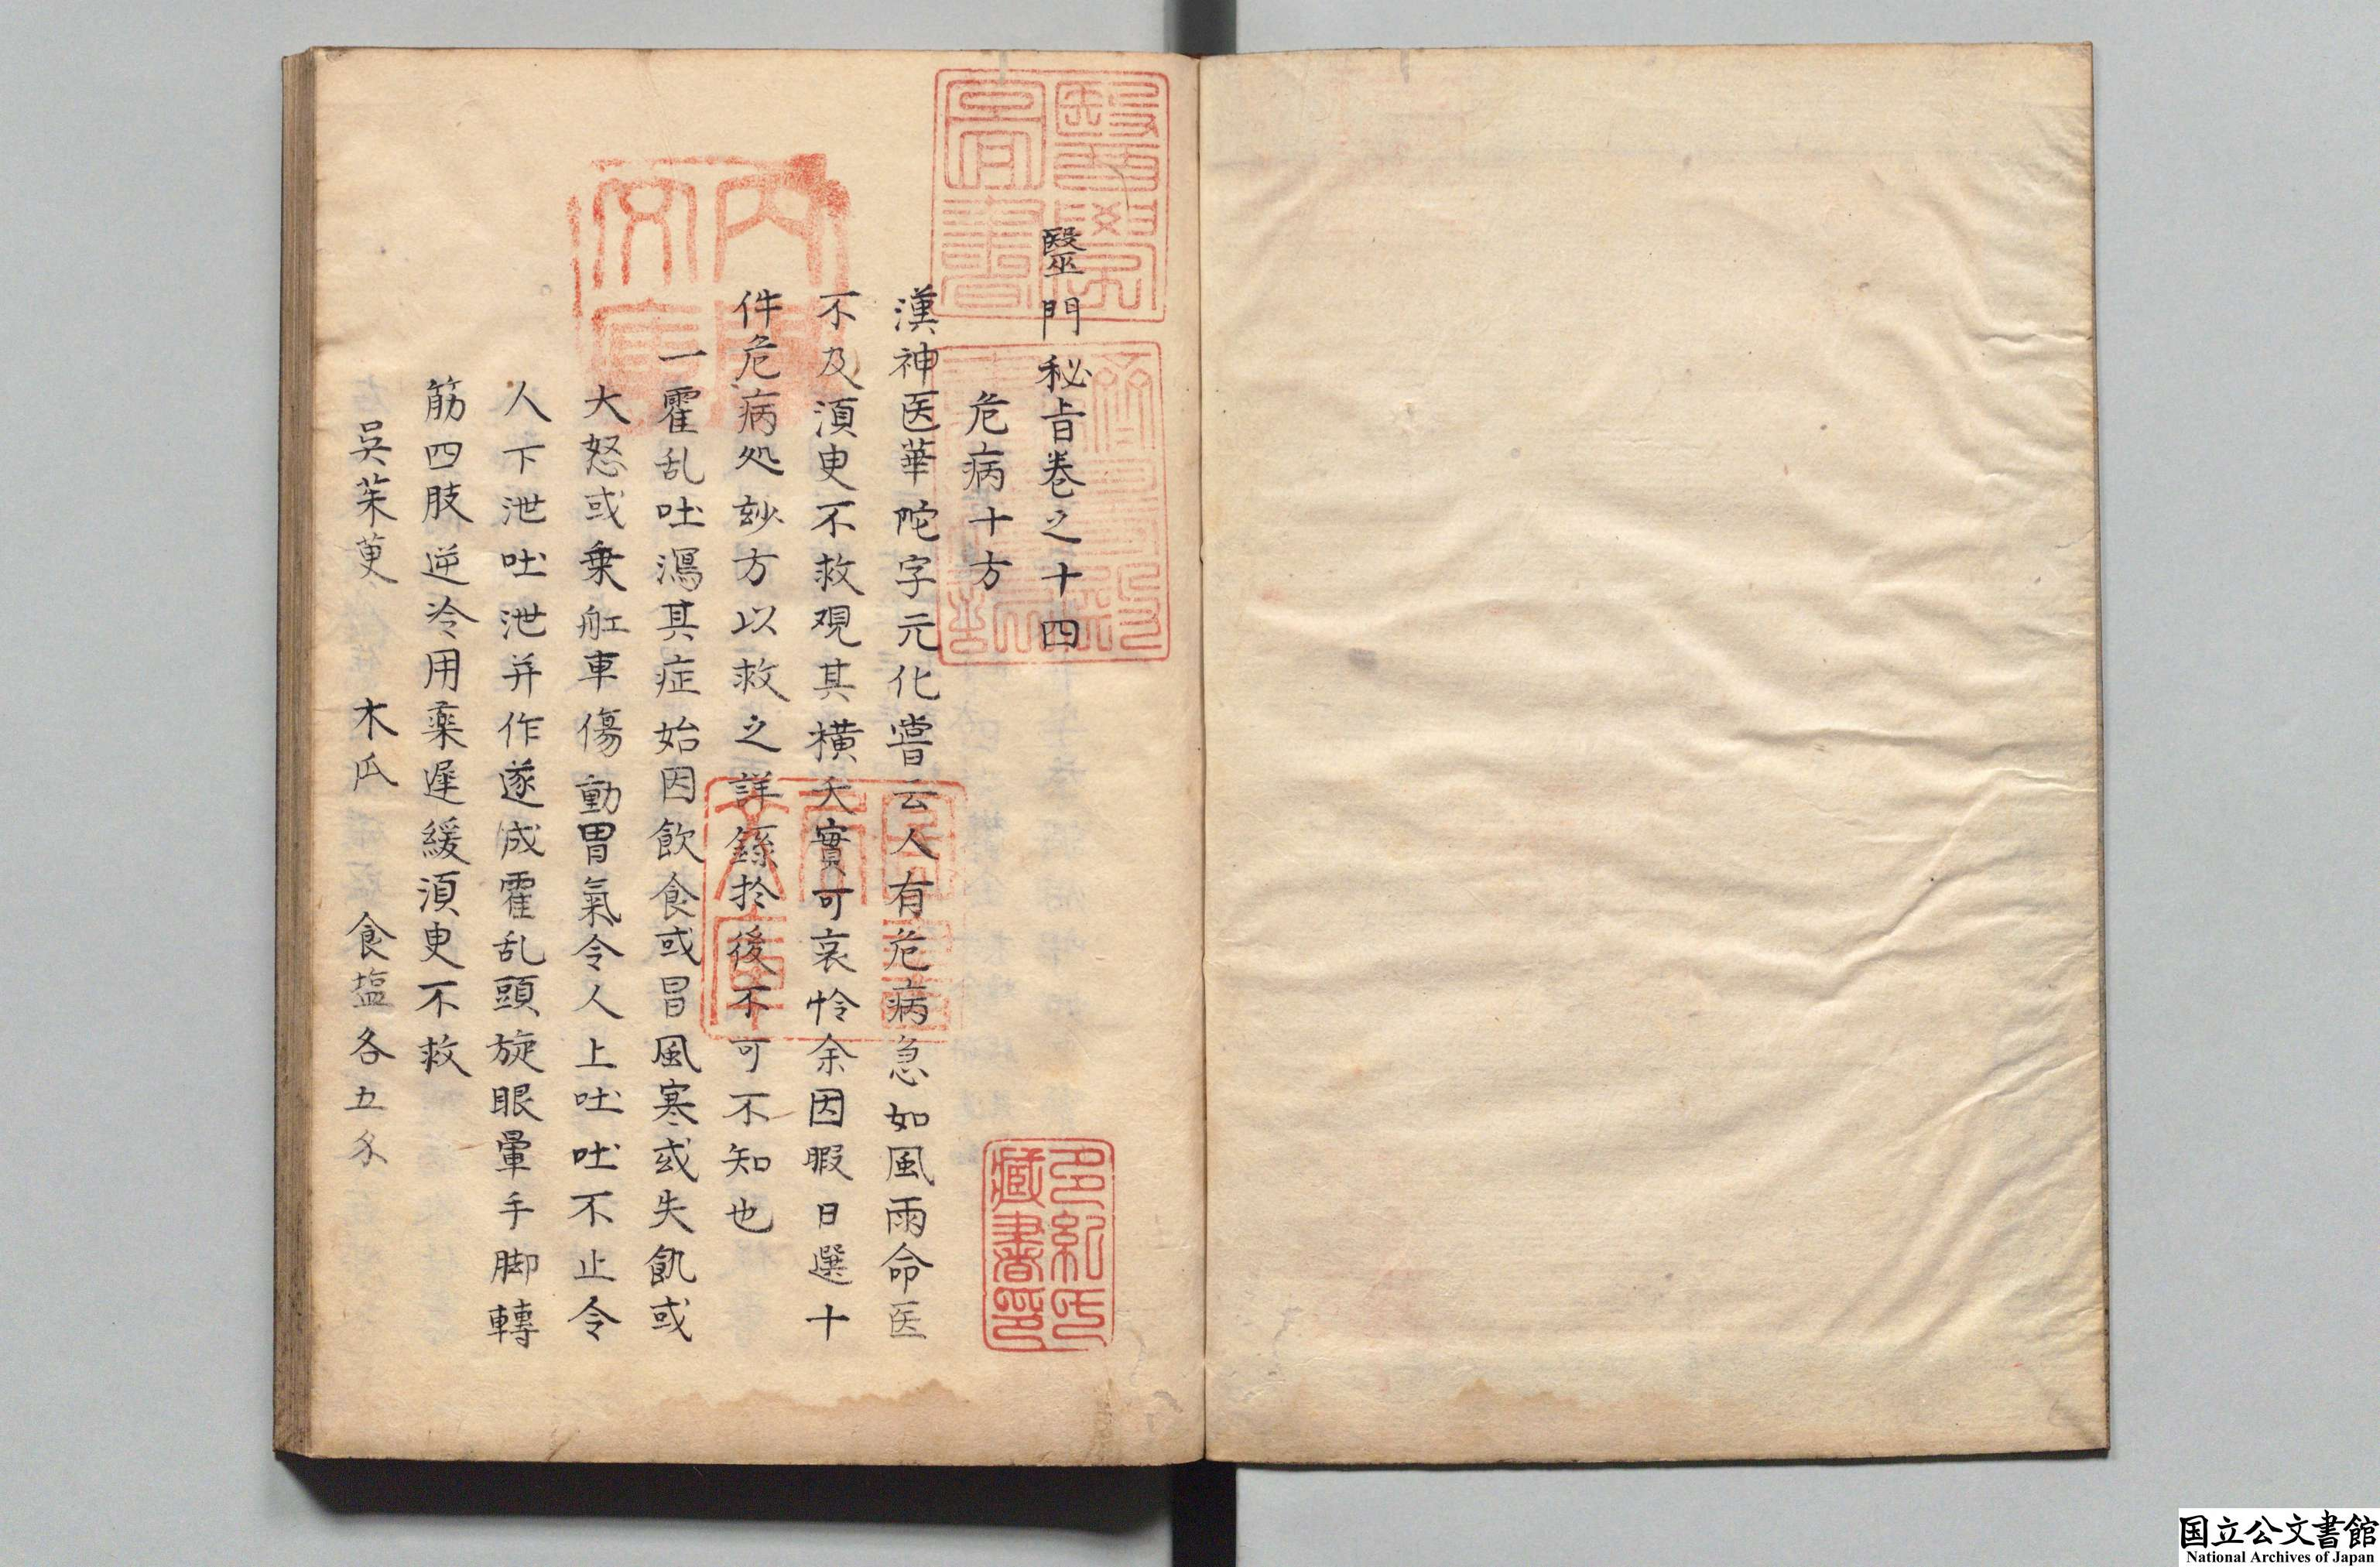 毉門秘旨卷之十四
危病十方
漢神医華陀字元化嘗云人有危病急如風雨命医
不及湏臾不救观其横夭實可哀怜余因暇日選十
件危病処玅方以救之詳錄扵後不可不知也
一霍乱吐瀉其症始因飲食或冒風寒或失飢或
大怒或乗舡車傷動胃氣令人上吐吐不止令
人下泄吐泄并作遂成霍乱頭旋眼暈手脚轉
筋四肢逆冷用藥遅緩湏臾不救
吳茱萸　木瓜　食塩各五
醫學
圖書
躋壽殿
書籍記
多紀氏
藏書印
内閣
文庫
日本
政府
圖書
国立公文書館
National Archives of Japan